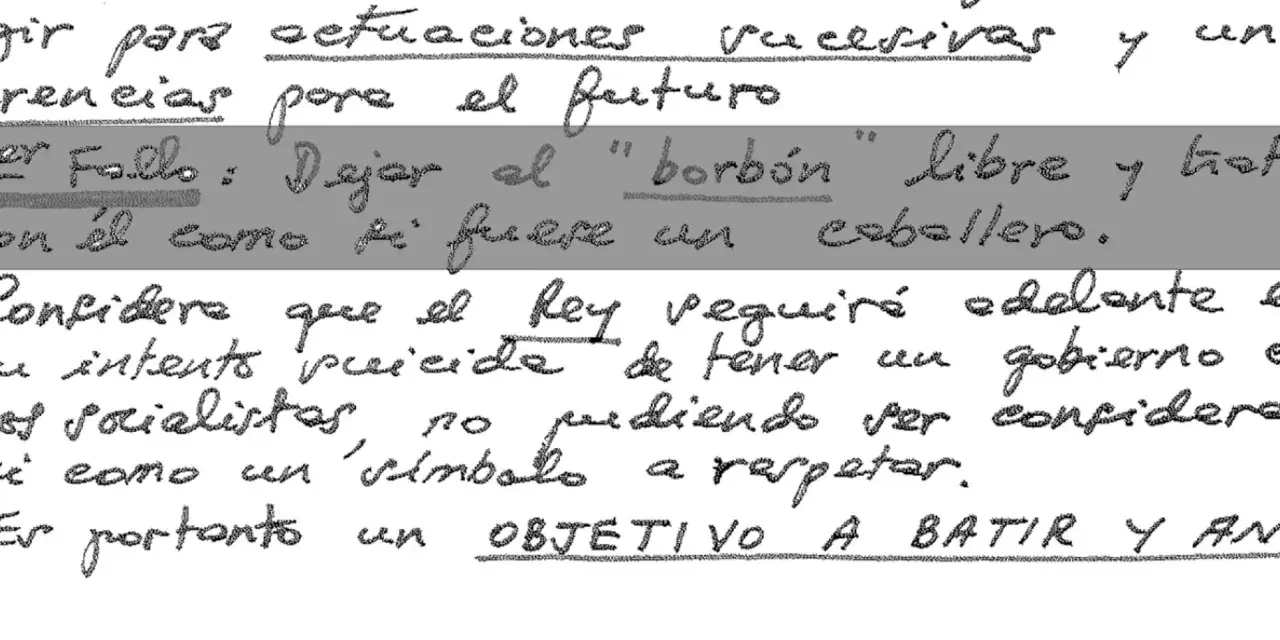 gir para actuaciones sucesivas y un
rencias para el futuro
er Fallo: Dejar al "borbón" libre y trat
on él como si fuese un caballero.
Considera que el Rey seguirá adelante e
u intento suicida de tener un gobierno c
os socialistas, no pudiendo ser considera
i como un símbolo a respetar.
Es por tanto un OBJETIVO A BATIR Y AN